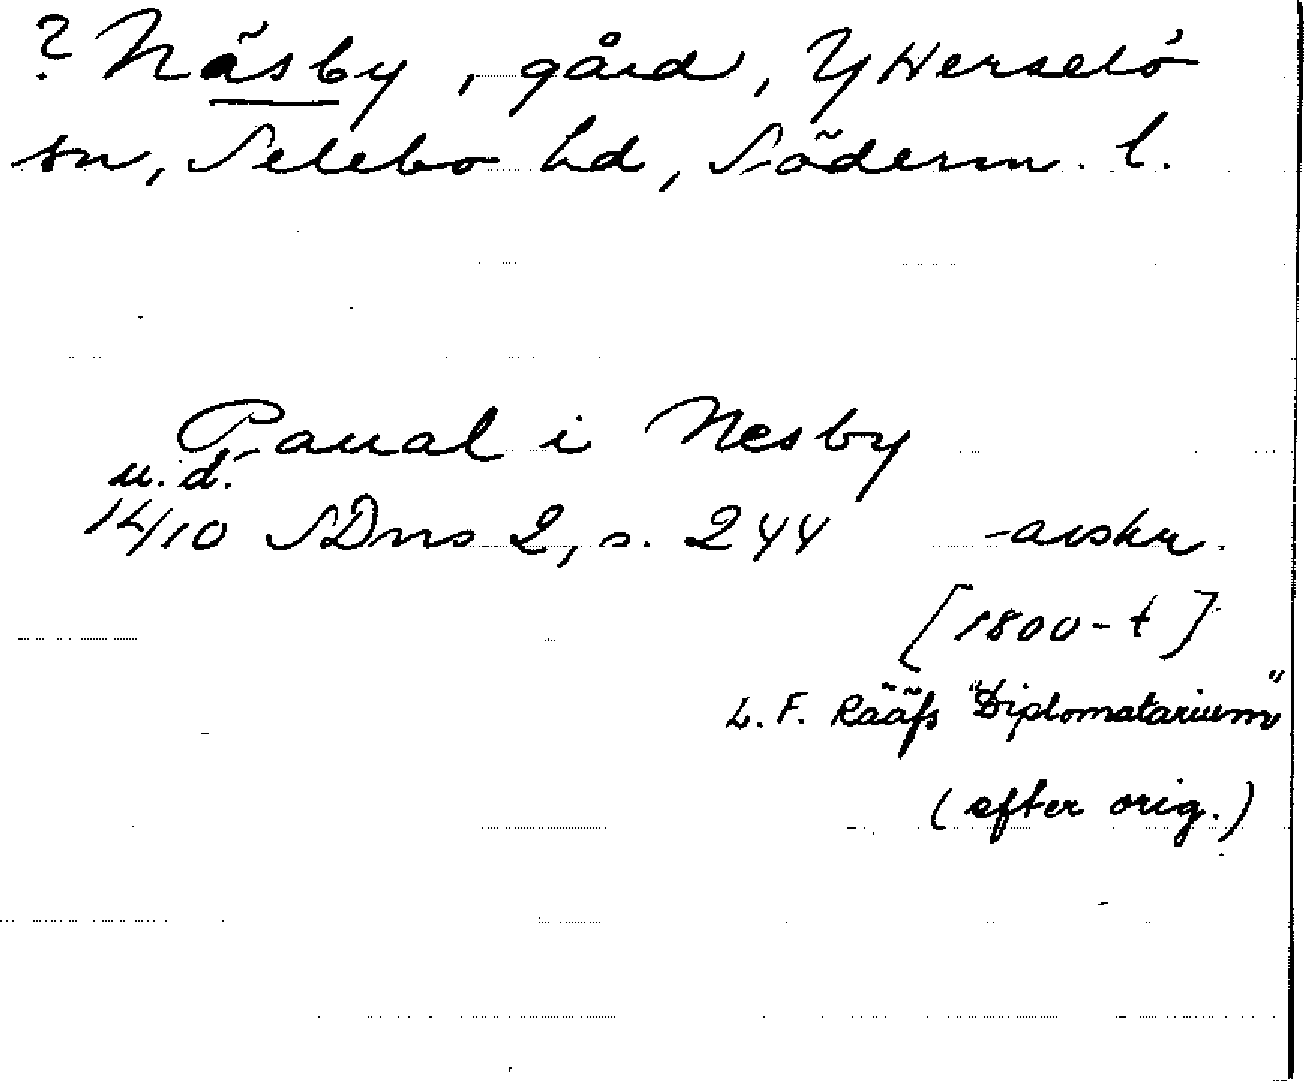 ? Näsby, gård, Ytterselö
sn, Selebo hd, Söderm. l.
Paual i Nesby
u. d.
14/10 SDns 2, s. 244 avskr.
[1800-t]
L. F. Rääfs "Diplomatarium"
(efter orig.)